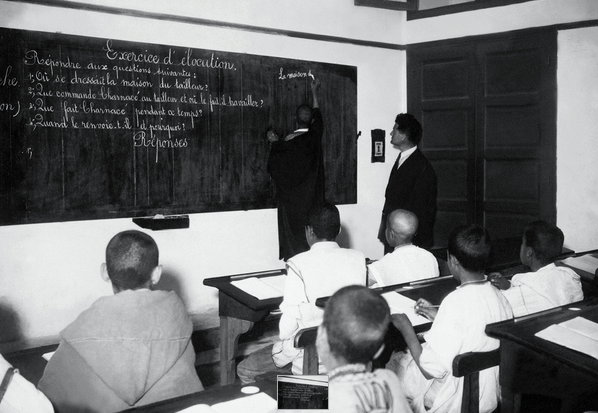 Exercice d'élocution.
Répondre aux questions suivantes :
1, Où se dressait la maison du tailleur?
2, Que commande Charnacé au tailleur et où le fait-il travailler?
3, Que fait Charnacé pendant ce temps?
4, Quand le renvoie-t-il et pourquoi?
Réponses
1,
La maison d